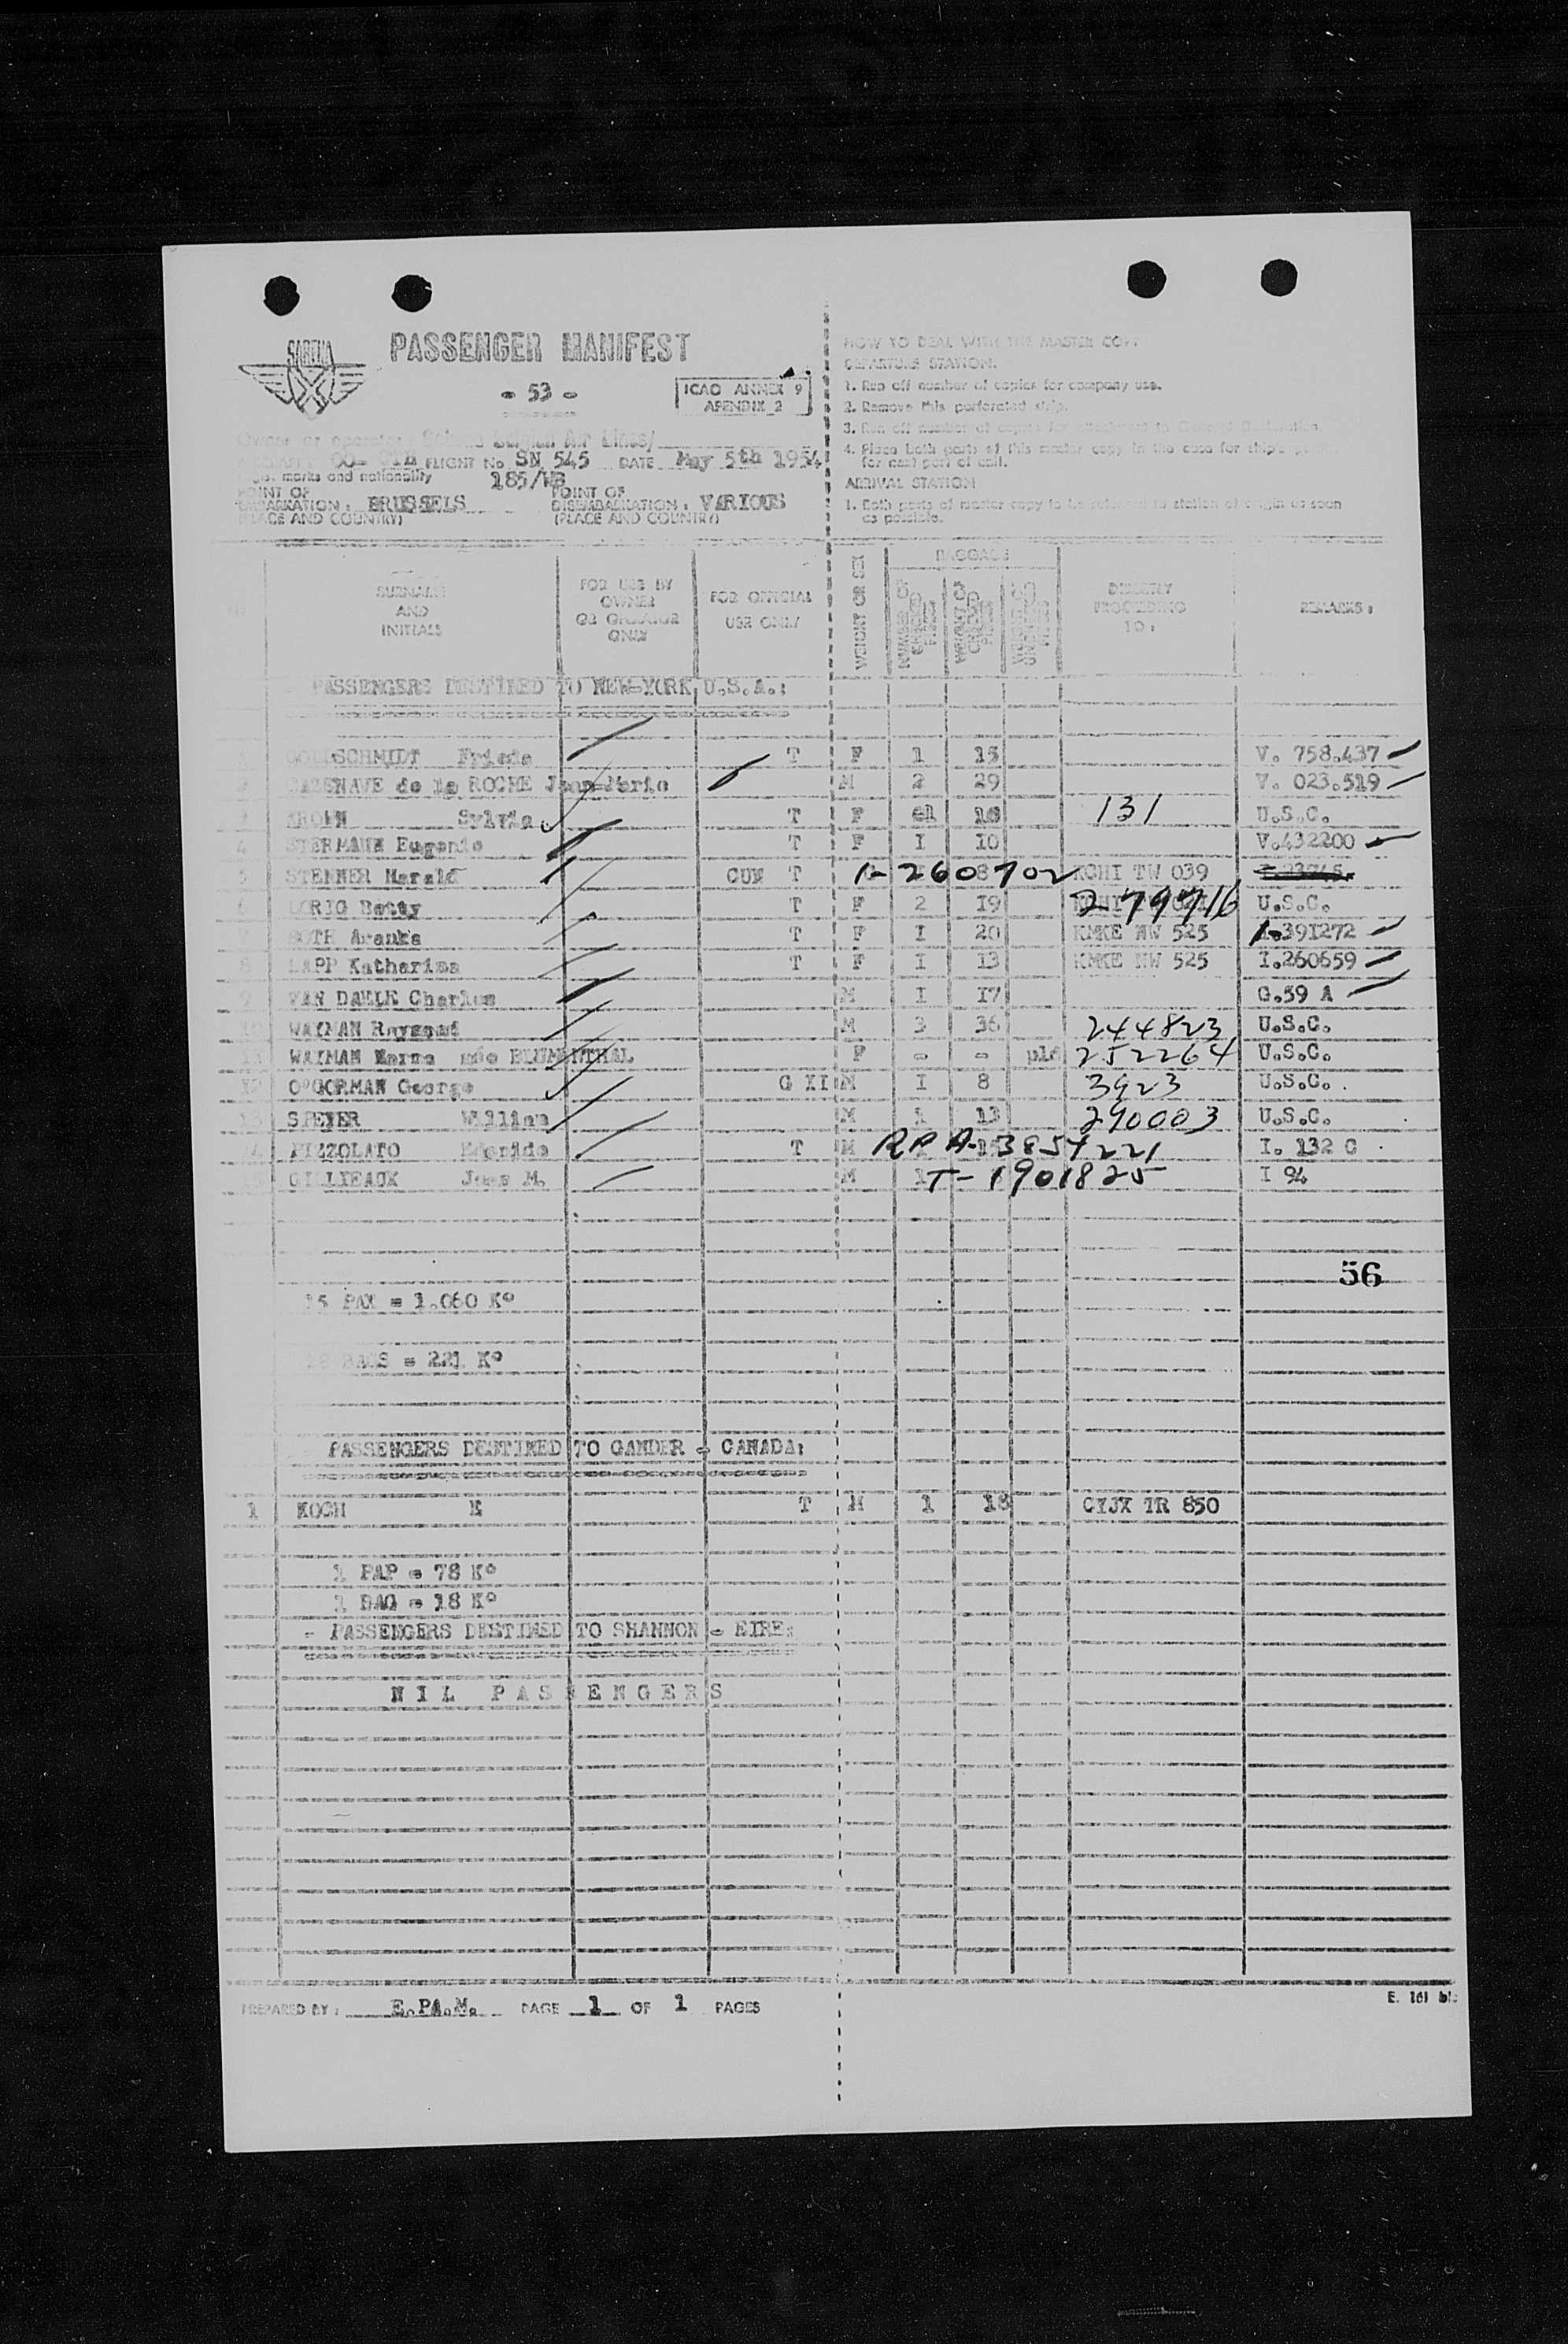 SABENA
PASSENGER MANIFEST
- 53 -
ICAO ANNEX 9
APENDIX 2
Owner or operator : Air Lines/
FLIGHT No SN 545 DATE May 5th 1954
marks and nationality 185/WB
POINT OF
EMBARKATION : BRUSSELS
(PLACE AND COUNTRY)
POINT OF
DISEMBARKATION : VARIOUS
(PLACE AND COUNTRY)
HOW TO DEAL WITH THE MASTER COPY
DEPARTURE STATION.
1. Run off number of copies for company use.
2. Remove this perforated strip.
3. Run off number of copies for
4. Place both parts of this master copy in the case for ship's
for next port of call.
ARRIVAL STATION
1. Both parts of master copy to be returned to station of origin as soon
as possible.
SURNAME
AND
INITIALS
FOR USE BY
OWNER
OR OPERATOR
ONLY
FOR OFFICIAL
USE ONLY
WEIGHT OR SEX
BAGGAGE
DIRECTLY
PROCEEDING
TO :
REMARKS :
PASSENGERS DESTINED TO NEW-YORK U.S.A.:
1 GOLDSCHMIDT Frieda T F 1 15 V. 758.437
2 CAZENAVE de la ROCHE Jean-Marie M 2 29 V. 023.519
3 BROWN Sylvia T F 131 U.S.C.
4 STERMANN Eugenie T F I 10 V.432200
5 STENNER Harald GUM T 8 KCHI TW 039
6 Betty T F 2 19 279716 U.S.C.
7 ROTH Aranka T F I 20 KMKE NW 525 391272
8 LAPP Katharina T F I 13 KMKE NW 525 I.260659
9 VAN DAELE Charles M I 17 G.59 A
10 WAYMAN Raymond M 3 36 244823 U.S.C.
11 WAYMAN née BLUMENTHAL F - - pld 252264 U.S.C.
12 O'GORMAN George G XI M I 8 3923 U.S.C.
13 SPEYER William M 1 13 290003 U.S.C.
14 PIZZOLATO T M RP A-3854221 I. 132 C
15 M. M 1 T-1901825 I 94
56
15 PAX = 1.060 K°
BAGS = 221 K°
PASSENGERS DESTINED TO GANDER - CANADA:
1 KOCH E T M 1 18 CYJX TR 850
1 PAP = 78 K°
1 BAG = 18 K°
- PASSENGERS DESTINED TO SHANNON - EIRE:
NIL PASSENGERS
PREPARED BY : E.PA.M. PAGE 1 OF 1 PAGES
E. 161 bis